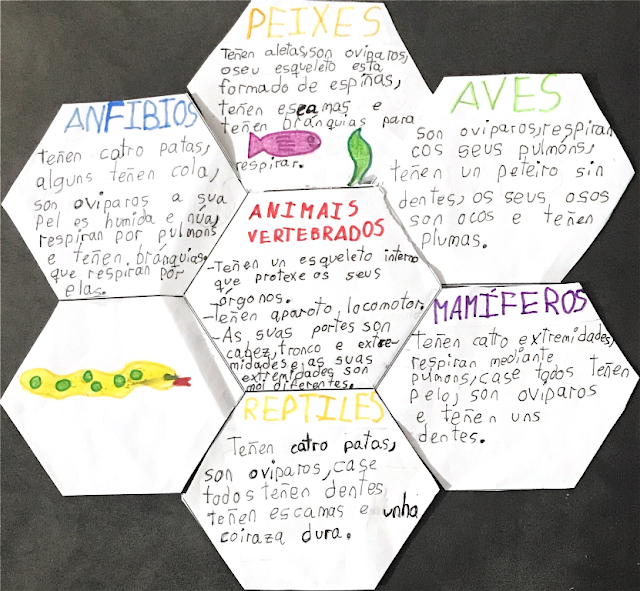 PEIXES
Teñen aletas, son oviparos,
o seu esqueleto esta
formado de espiñas,
teñen escamas e
teñen bránquias para
respirar.
ANFIBIOS
teñen catro patas,
alguns teñen cola,
son oviparos a sua
Pel es humida e núa,
respiran por pulmons
e teñen bránquias.
que respiran por
elas.
AVES
son oviparos, respiran
cos seus pulmóns,
teñen un peteiro sin
dentes, os seus osos
son ocos e teñen
plumas.
ANIMAIS
VERTEBRADOS
-Teñen un esqueleto interno
que protexe os seus
órgonos.
-Teñen aparato, locomotor.
-As suas partes son
cabez, tronco e extre-
midades e as suas
extremidades son
moi diferentes.
MAMÍFEROS
Teñen catro extremidades,
respiran mediante
pulmons, case todos teñen
pelo, son oviparos
e teñen uns
dentes.
REPTILES
Teñen catro patas,
son oviparos, case
todos teñen dentes
teñen escamas e unha
coiraza dura.